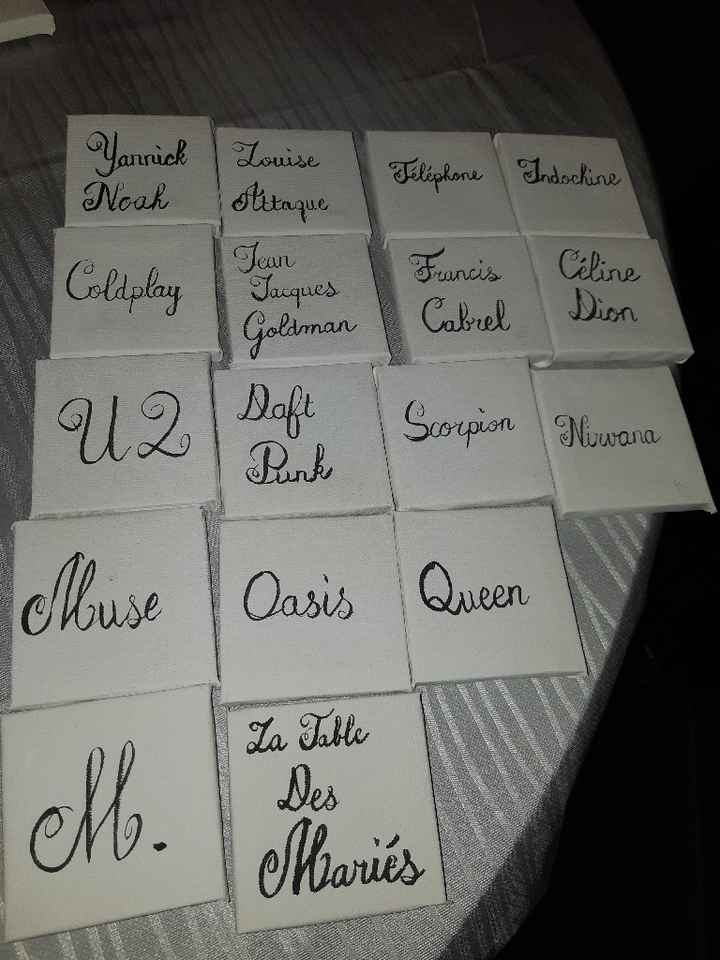 Yannick
Noah
Louise
Attaque
Téléphone
Indochine
Coldplay
Jean
Jacques
Goldman
Francis
Cabrel
Céline
Dion
U2
Daft
Punk
Scorpion
Nirvana
Muse
Oasis
Queen
M.
La Table
Des
Mariés